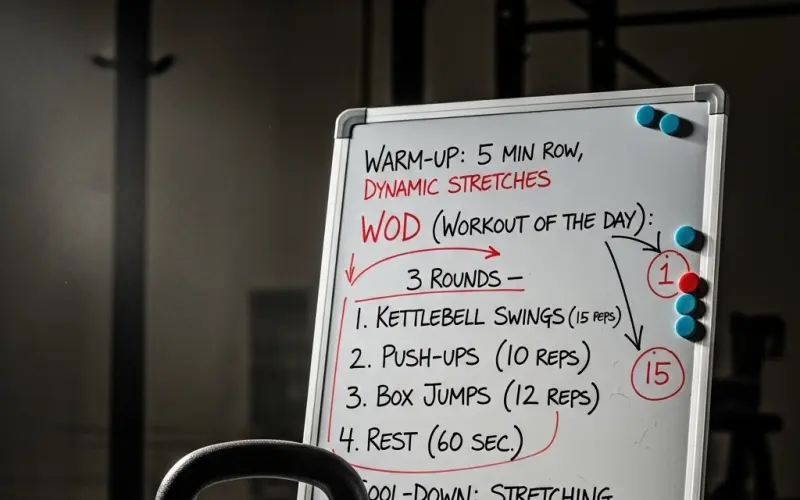 WARM-UP: 5 MIN ROW,
DYNAMIC STRETCHES
WOD (WORKOUT OF THE DAY):
3 ROUNDS –
1
1. KETTLEBELL SWINGS (15 REPS)
2. PUSH-UPS (10 REPS)
15
3. BOX JUMPS (12 REPS)
4. REST (60 SEC.)
COOL-DOWN: STRETCHING